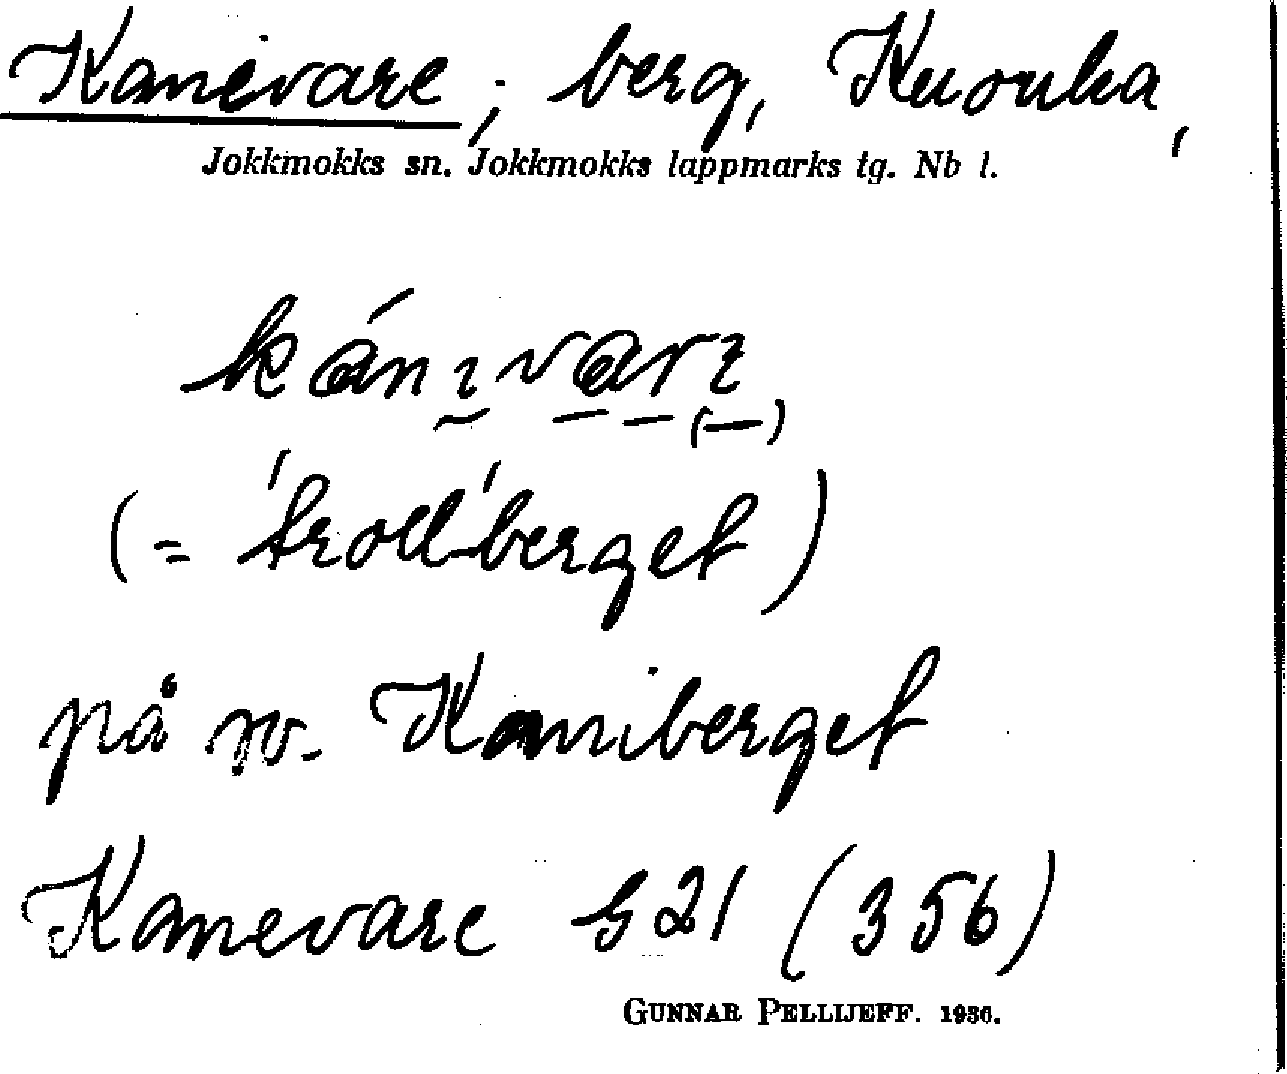 Kanevare, berg, Kuouka,
Jokkmokks sn. Jokkmokks lappmarks tg. Nb l.
kánɩvarɩ
(= 'troll-'berget)
på sv. Kaniberget
Kanevare G 21 (356)
GUNNAR PELLIJEFF. 1936.